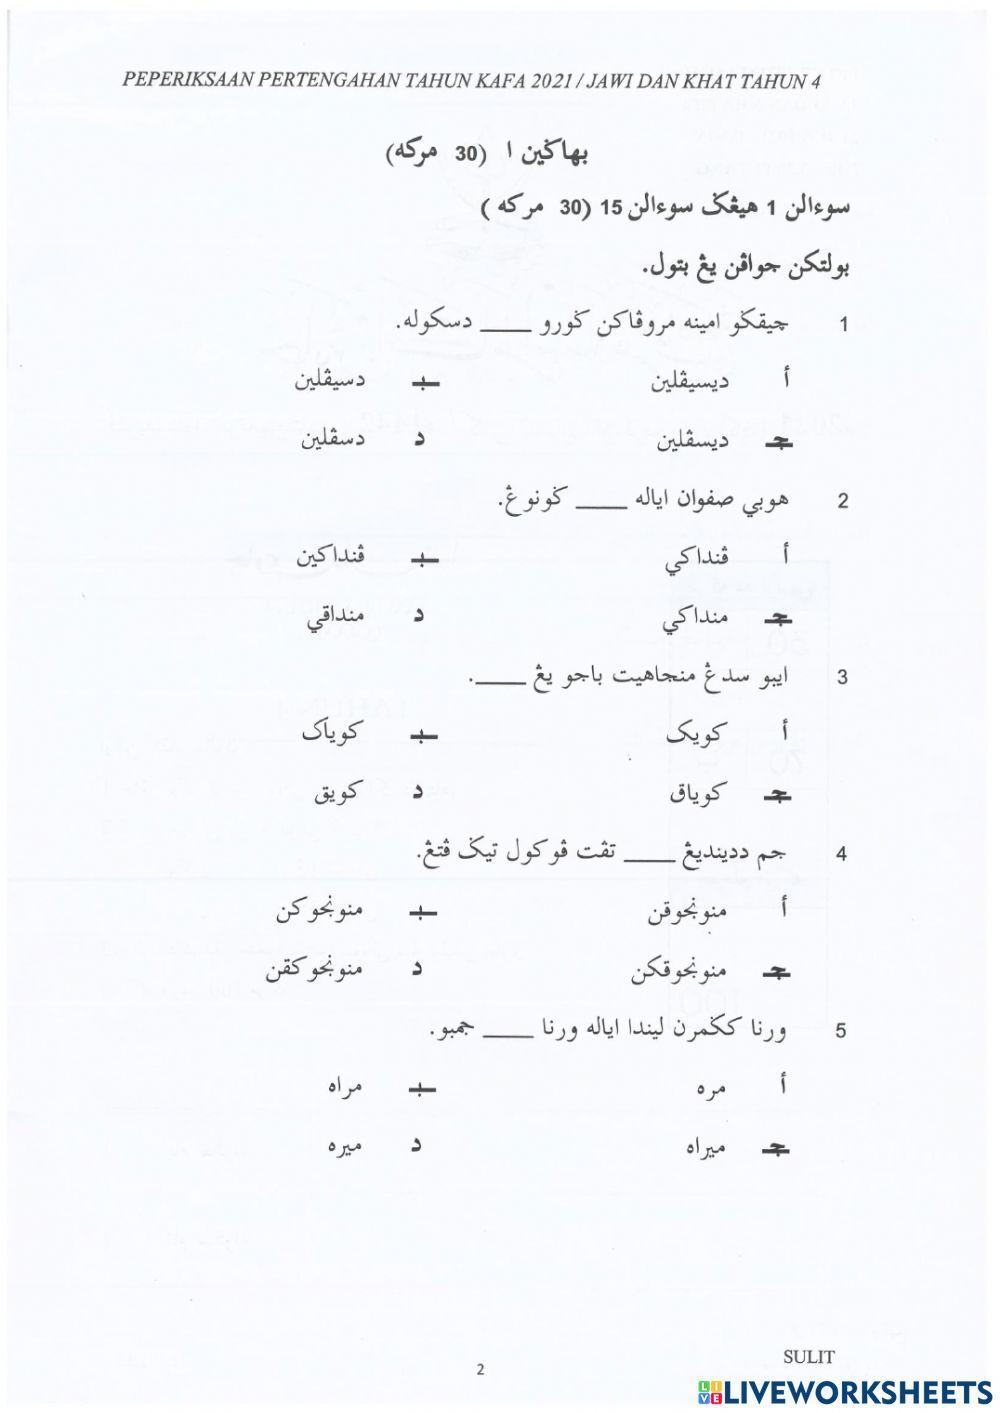 PEPERIKSAAN PERTENGAHAN TAHUN KAFA 2021 / JAWI DAN KHAT TAHUN 4
بهاڬين ا (30 مركه)
سوءالن 1 هيڠݢ سوءالن 15 (30 مركه )
بولتكن جواڤن يڠ بتول.
1 چيقݢو امينه مروڤاكن ݢورو ____ دسكوله.
أ ديسيڤلين ب دسيڤلين
ج ديسڤلين د دسڤلين
2 هوبي صفوان اياله ____ ݢونوڠ.
أ ڤنداكي ب ڤنداكين
ج منداكي د منداقي
3 ايبو سدڠ منجاهيت باجو يڠ ____.
أ كويک ب كوياک
ج كوياق د كويق
4 جم ددينديڠ ____ تڤت ڤوكول تيݢ ڤتڠ.
أ منونجوقن ب منونجوكن
ج منونجوقكن د منونجوكقن
5 ورنا كݢمرن ليندا اياله ورنا ____ جمبو.
أ مره ب مراه
ج ميراه د ميره
SULIT
2
LIVEWORKSHEETS